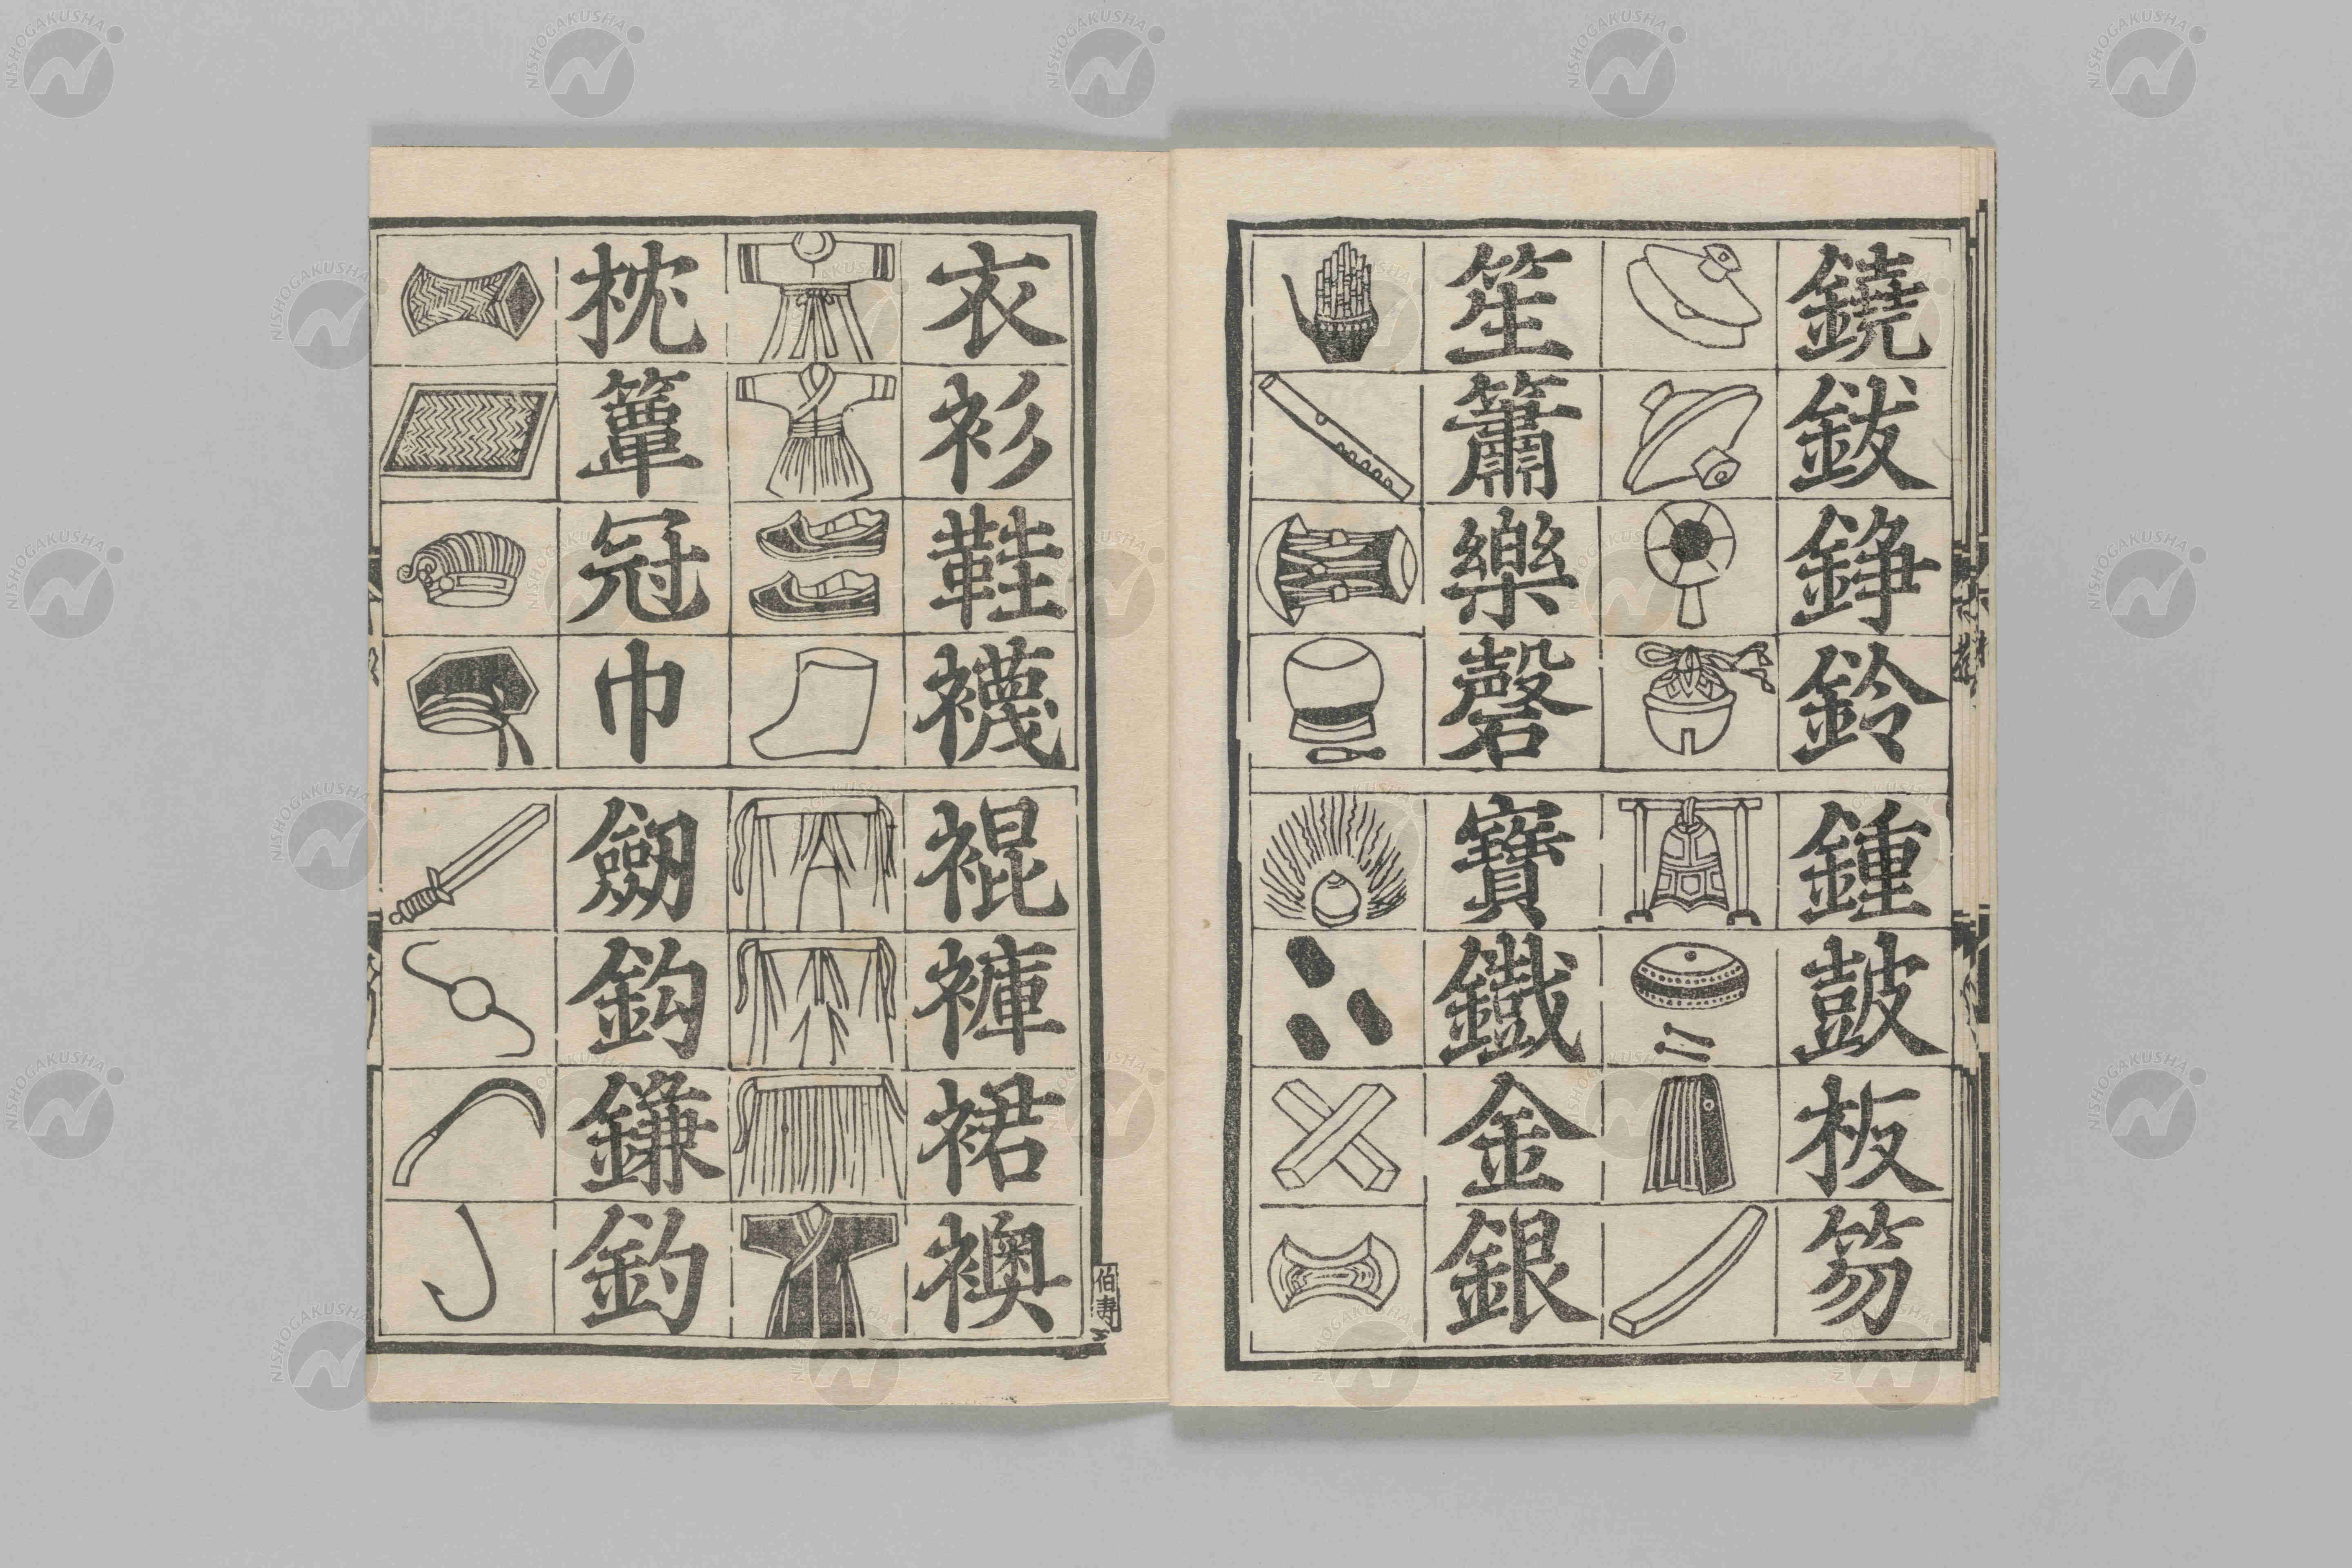 鐃鈸錚鈴鍾鼓板笏
笙簫樂磬寶鐵金銀
衣衫鞋襪裩褲裙襖
枕簟冠巾劒鈎鎌釣
佰壽
NISHOGAKUSHA